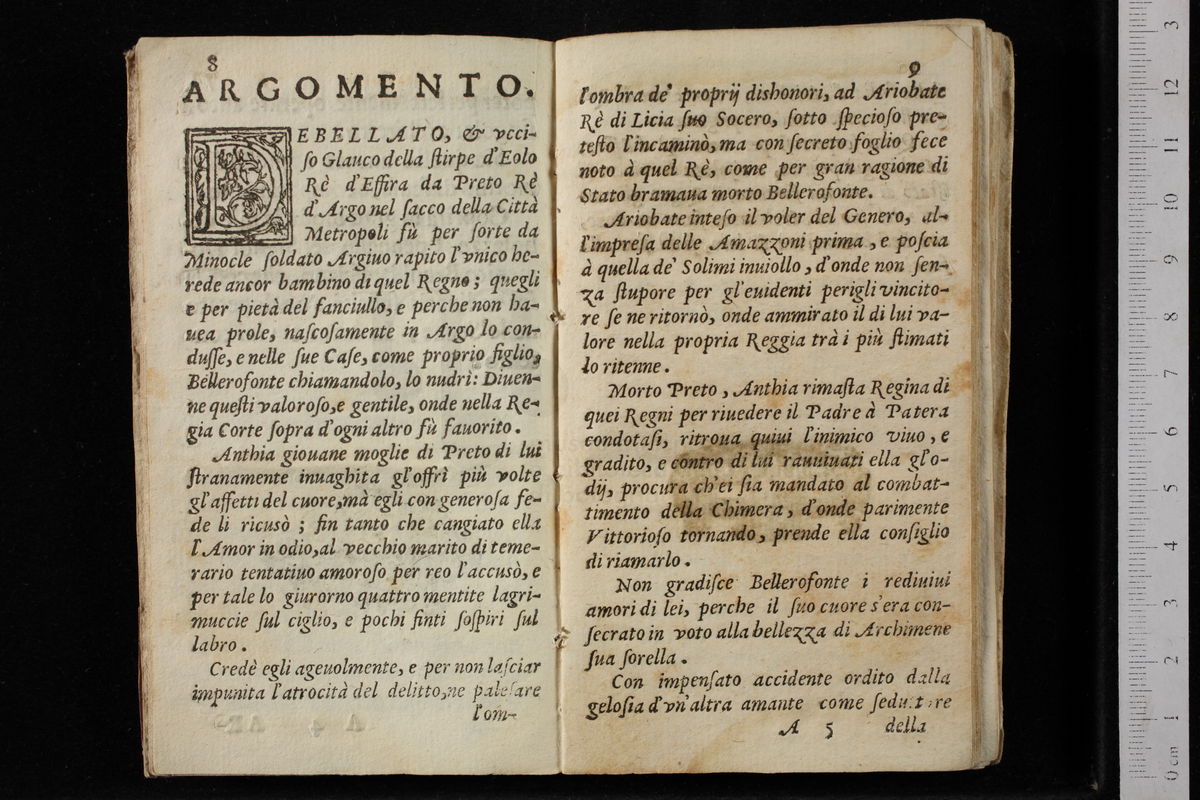 8
ARGOMENTO.
DEBELLATO, & vcci-
ſo Glauco della ſtirpe d'Eolo
Rè d'Effira da Preto Rè
d'Argo nel ſacco della Città
Metropoli fù per ſorte da
Minocle ſoldato Argiuo rapito l'vnico he-
rede ancor bambino di quel Regno; quegli
e per pietà del fanciullo, e perche non ha-
uea prole, naſcoſamente in Argo lo con-
duſſe, e nelle ſue Caſe, come proprio figlio,
Bellerofonte chiamandolo, lo nudrì: Diuen-
ne queſti valoroſo, e gentile, onde nella Re-
gia Corte ſopra d'ogni altro fù fauorito.
Anthia giouane moglie di Preto di lui
ſtranamente inuaghita gl'offrì più volte
gl'affetti del cuore, mà egli con generoſa fe-
de li ricusò; fin tanto che cangiato ella
l'Amor in odio, al vecchio marito di teme-
rario tentatiuo amoroſo per reo l'accusò, e
per tale lo giurorno quattro mentite lagri-
muccie ſul ciglio, e pochi finti ſoſpiri ſul
labro.
Credè egli ageuolmente, e per non laſciar
impunita l'atrocità del delitto, ne paleſare
l'om-
9
l'ombra de' proprij dishonori, ad Ariobate
Rè di Licia ſuo Socero, ſotto ſpecioſo pre-
teſto l'incaminò, ma con ſecreto foglio fece
noto à quel Rè, come per gran ragione di
Stato bramaua morto Bellerofonte.
Ariobate inteſo il voler del Genero, al-
l'impreſa delle Amazzoni prima, e poſcia
à quella de' Solimi inuiollo, d'onde non ſen-
za ſtupore per gl'euidenti perigli vincito-
re ſe ne ritornò, onde ammirato il di lui va-
lore nella propria Reggia trà i più ſtimati
lo ritenne.
Morto Preto, Anthia rimaſta Regina di
quei Regni per riuedere il Padre à Patera
condotaſi, ritroua quiui l'inimico viuo, e
gradito, e contro di lui rauuiuati ella gl'o-
dij, procura ch'ei ſia mandato al combat-
timento della Chimera, d'onde parimente
Vittorioſo tornando, prende ella conſiglio
di riamarlo.
Non gradiſce Bellerofonte i rediuiui
amori di lei, perche il ſuo cuore s'era con-
ſecrato in voto alla bellezza di Archimene
ſua ſorella.
Con impenſato accidente ordito dalla
geloſia d'vn'altra amante come ſeduttore
A 5 della
0 cm 1 2 3 4 5 6 7 8 9 10 11 12 3